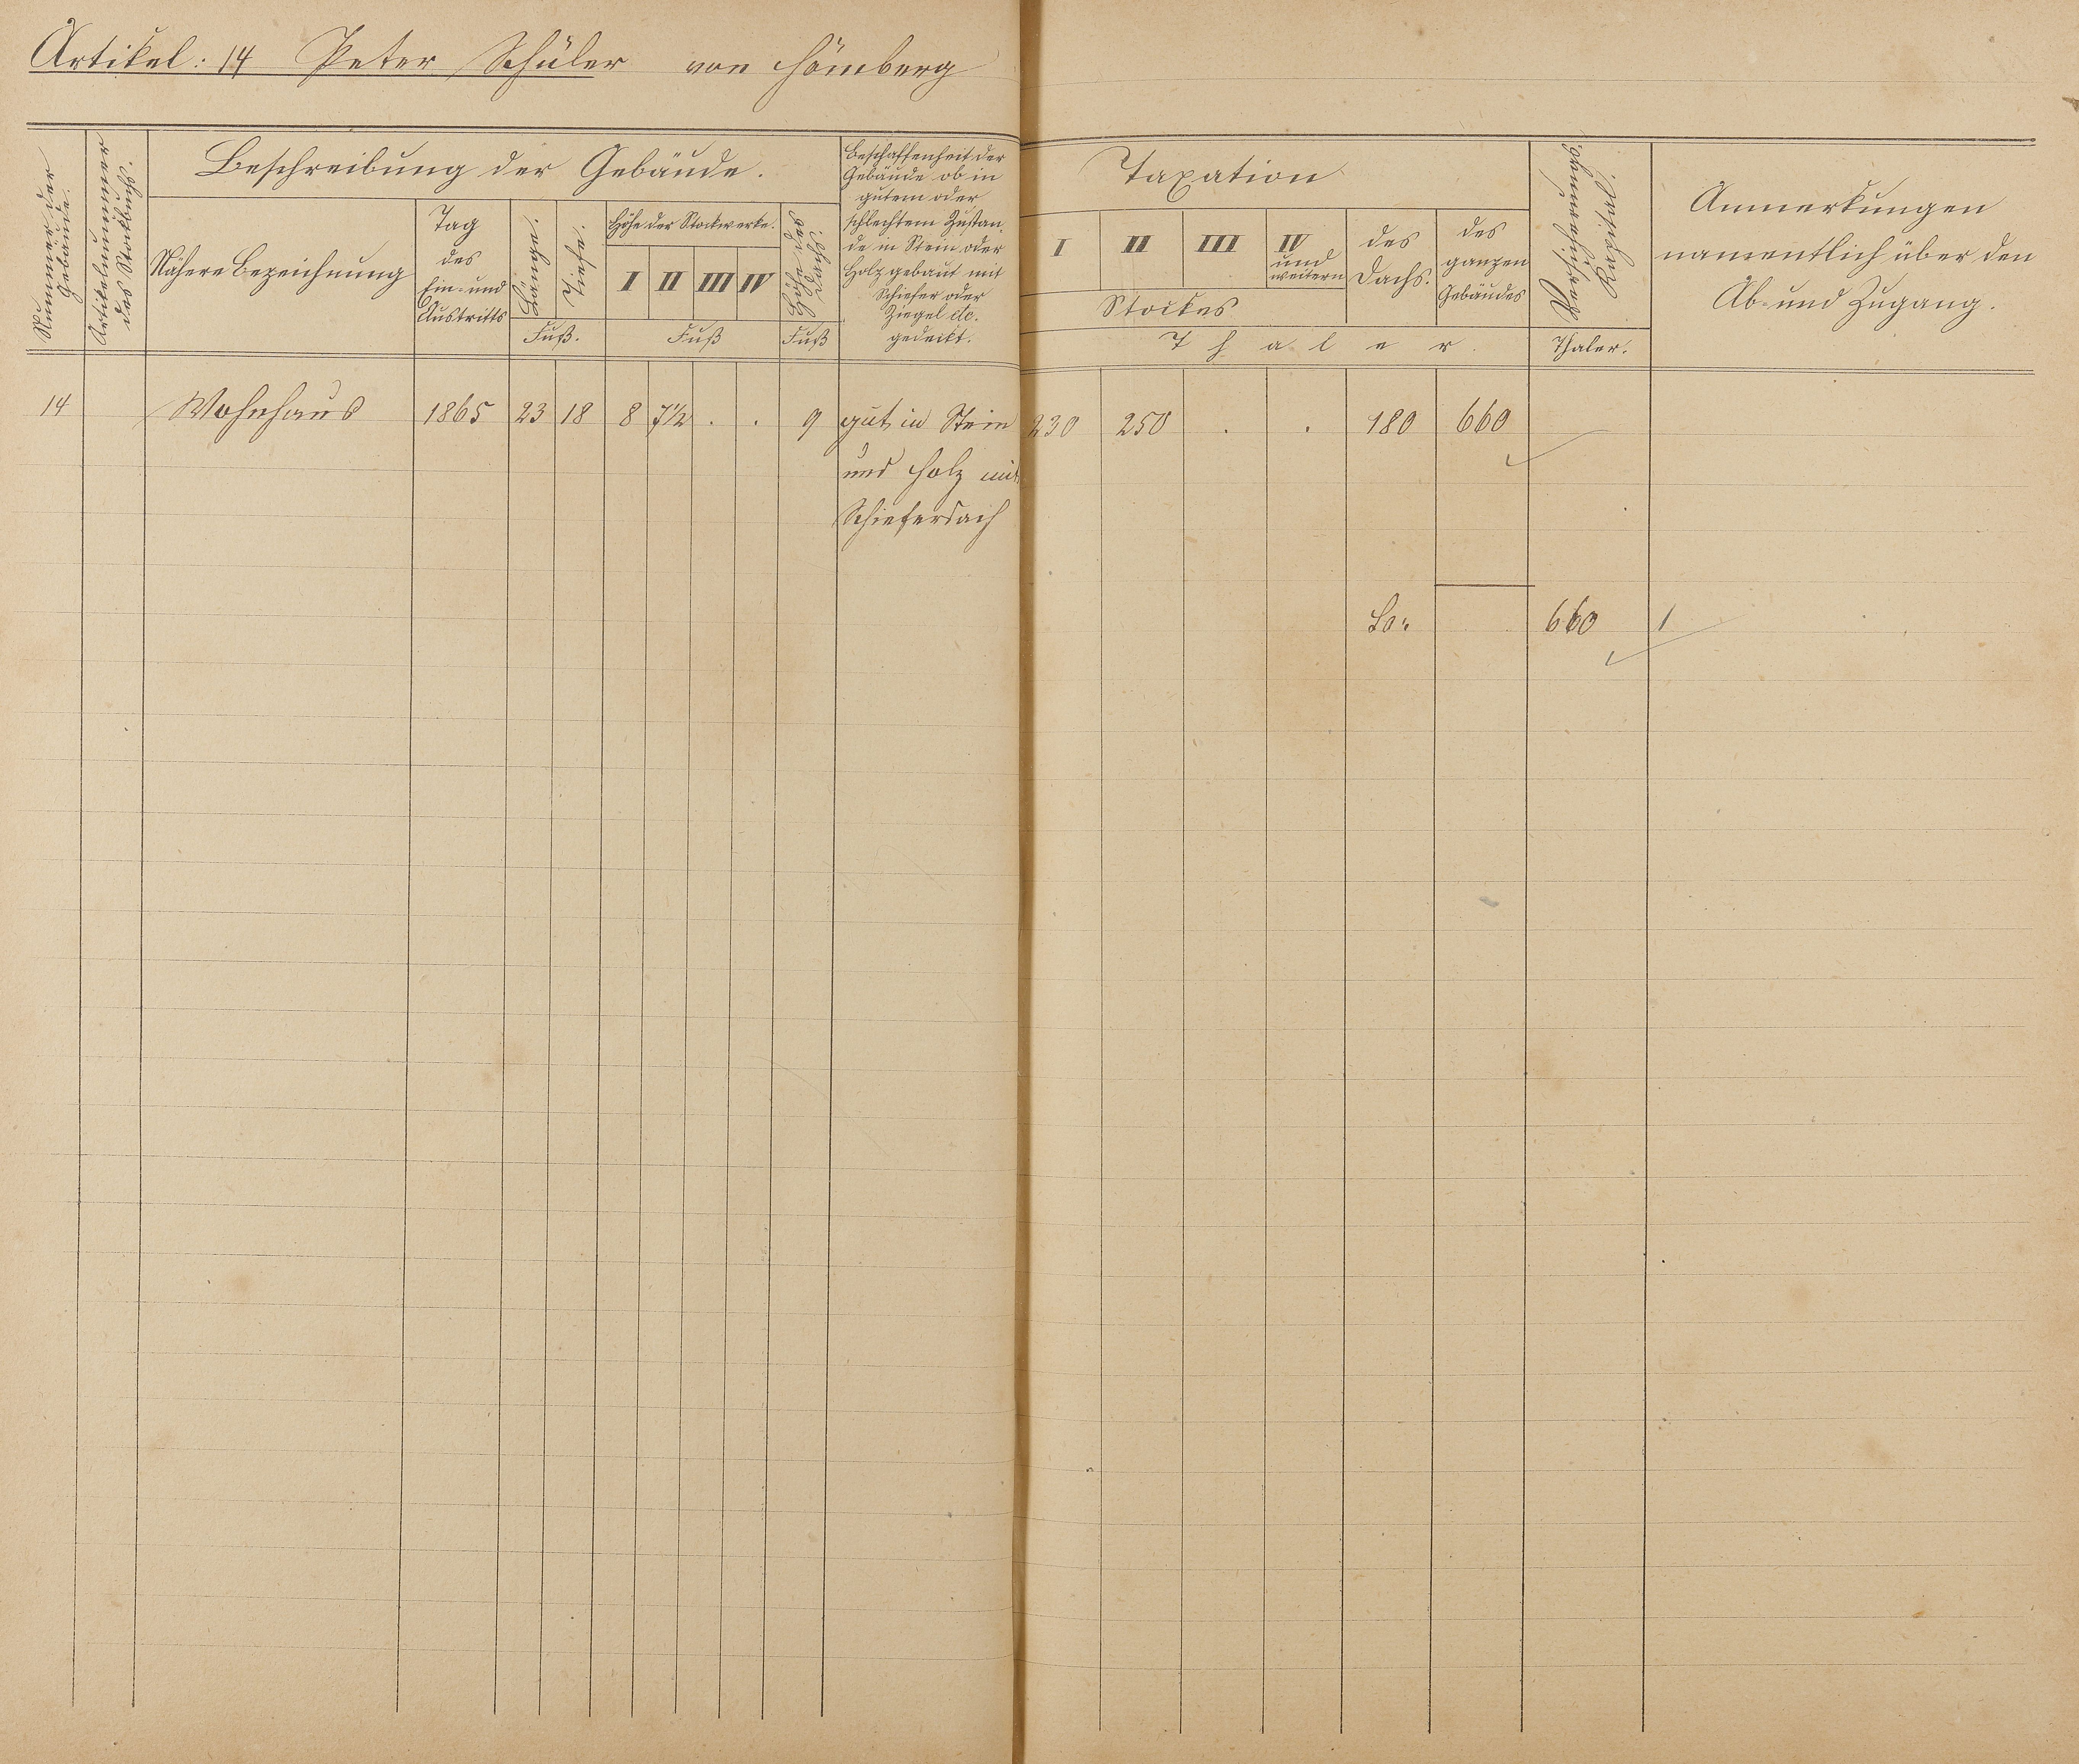 Artikel: 14 Peter Schüler von Hömberg
Nummer der
Gebäude.
Artikelnummer
des Stockbuchs.
Beschreibung der Gebäude.
Nähere Bezeichnung
Tag
des
Ein- und
Austritts
Länge.
Tiefe.
Fuß.
Höhe der Stockwerke.
I II III IV
Fuß
Höhe des
Dachs.
Fuß
Beschaffenheit der
Gebäude ob in
gutem oder
schlechtem Zustan-
de in Stein oder
Holz gebaut mit
Schiefer oder
Ziegel etc.
gedeckt.
Taxation
I II III IV
und
weitern
Stockes
des
Dachs.
des
ganzen
Gebäudes
Thaler.
Versicherungs
Kapital.
Thaler.
Anmerkungen
namentlich über den
Ab- und Zugang.
14 Wohnhaus 1865 23 18 8 7½ . . 9 gut in Stein 230 250 . . 180 660
und Holz mit
Schieferdach
660 1